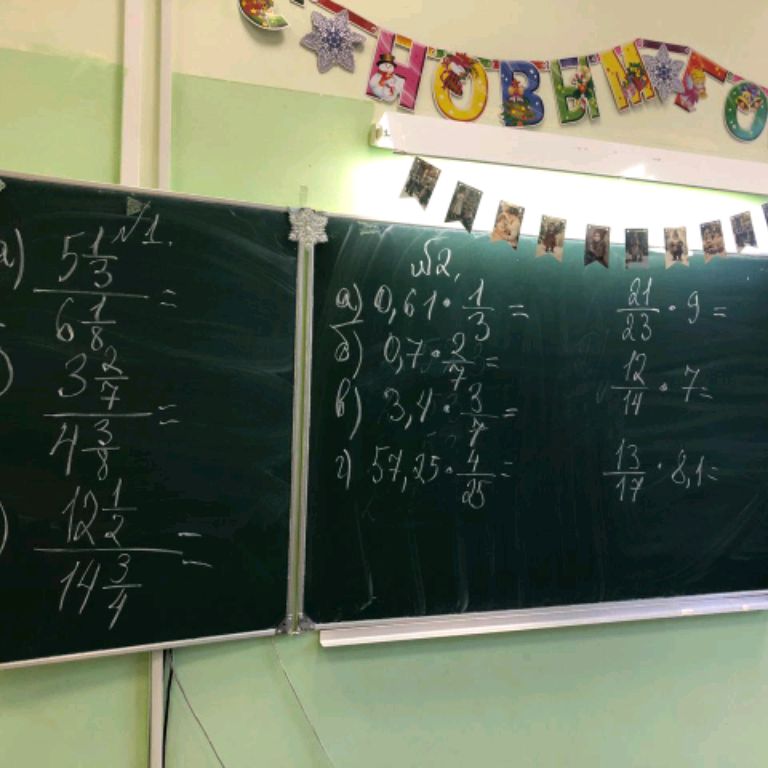 С НОВЫМ ГО
№1.
а) 5 1/3 / 6 1/8 =
) 3 2/7 / 4 3/8 =
) 12 1/2 / 14 3/4 =
№2.
а) 0,61 · 1/3 =
б) 0,7 · 2/7 =
в) 3,4 · 3/7 =
г) 57,25 · 4/25 =
21/23 · 9 =
12/14 · 7 =
13/17 · 8,1 =